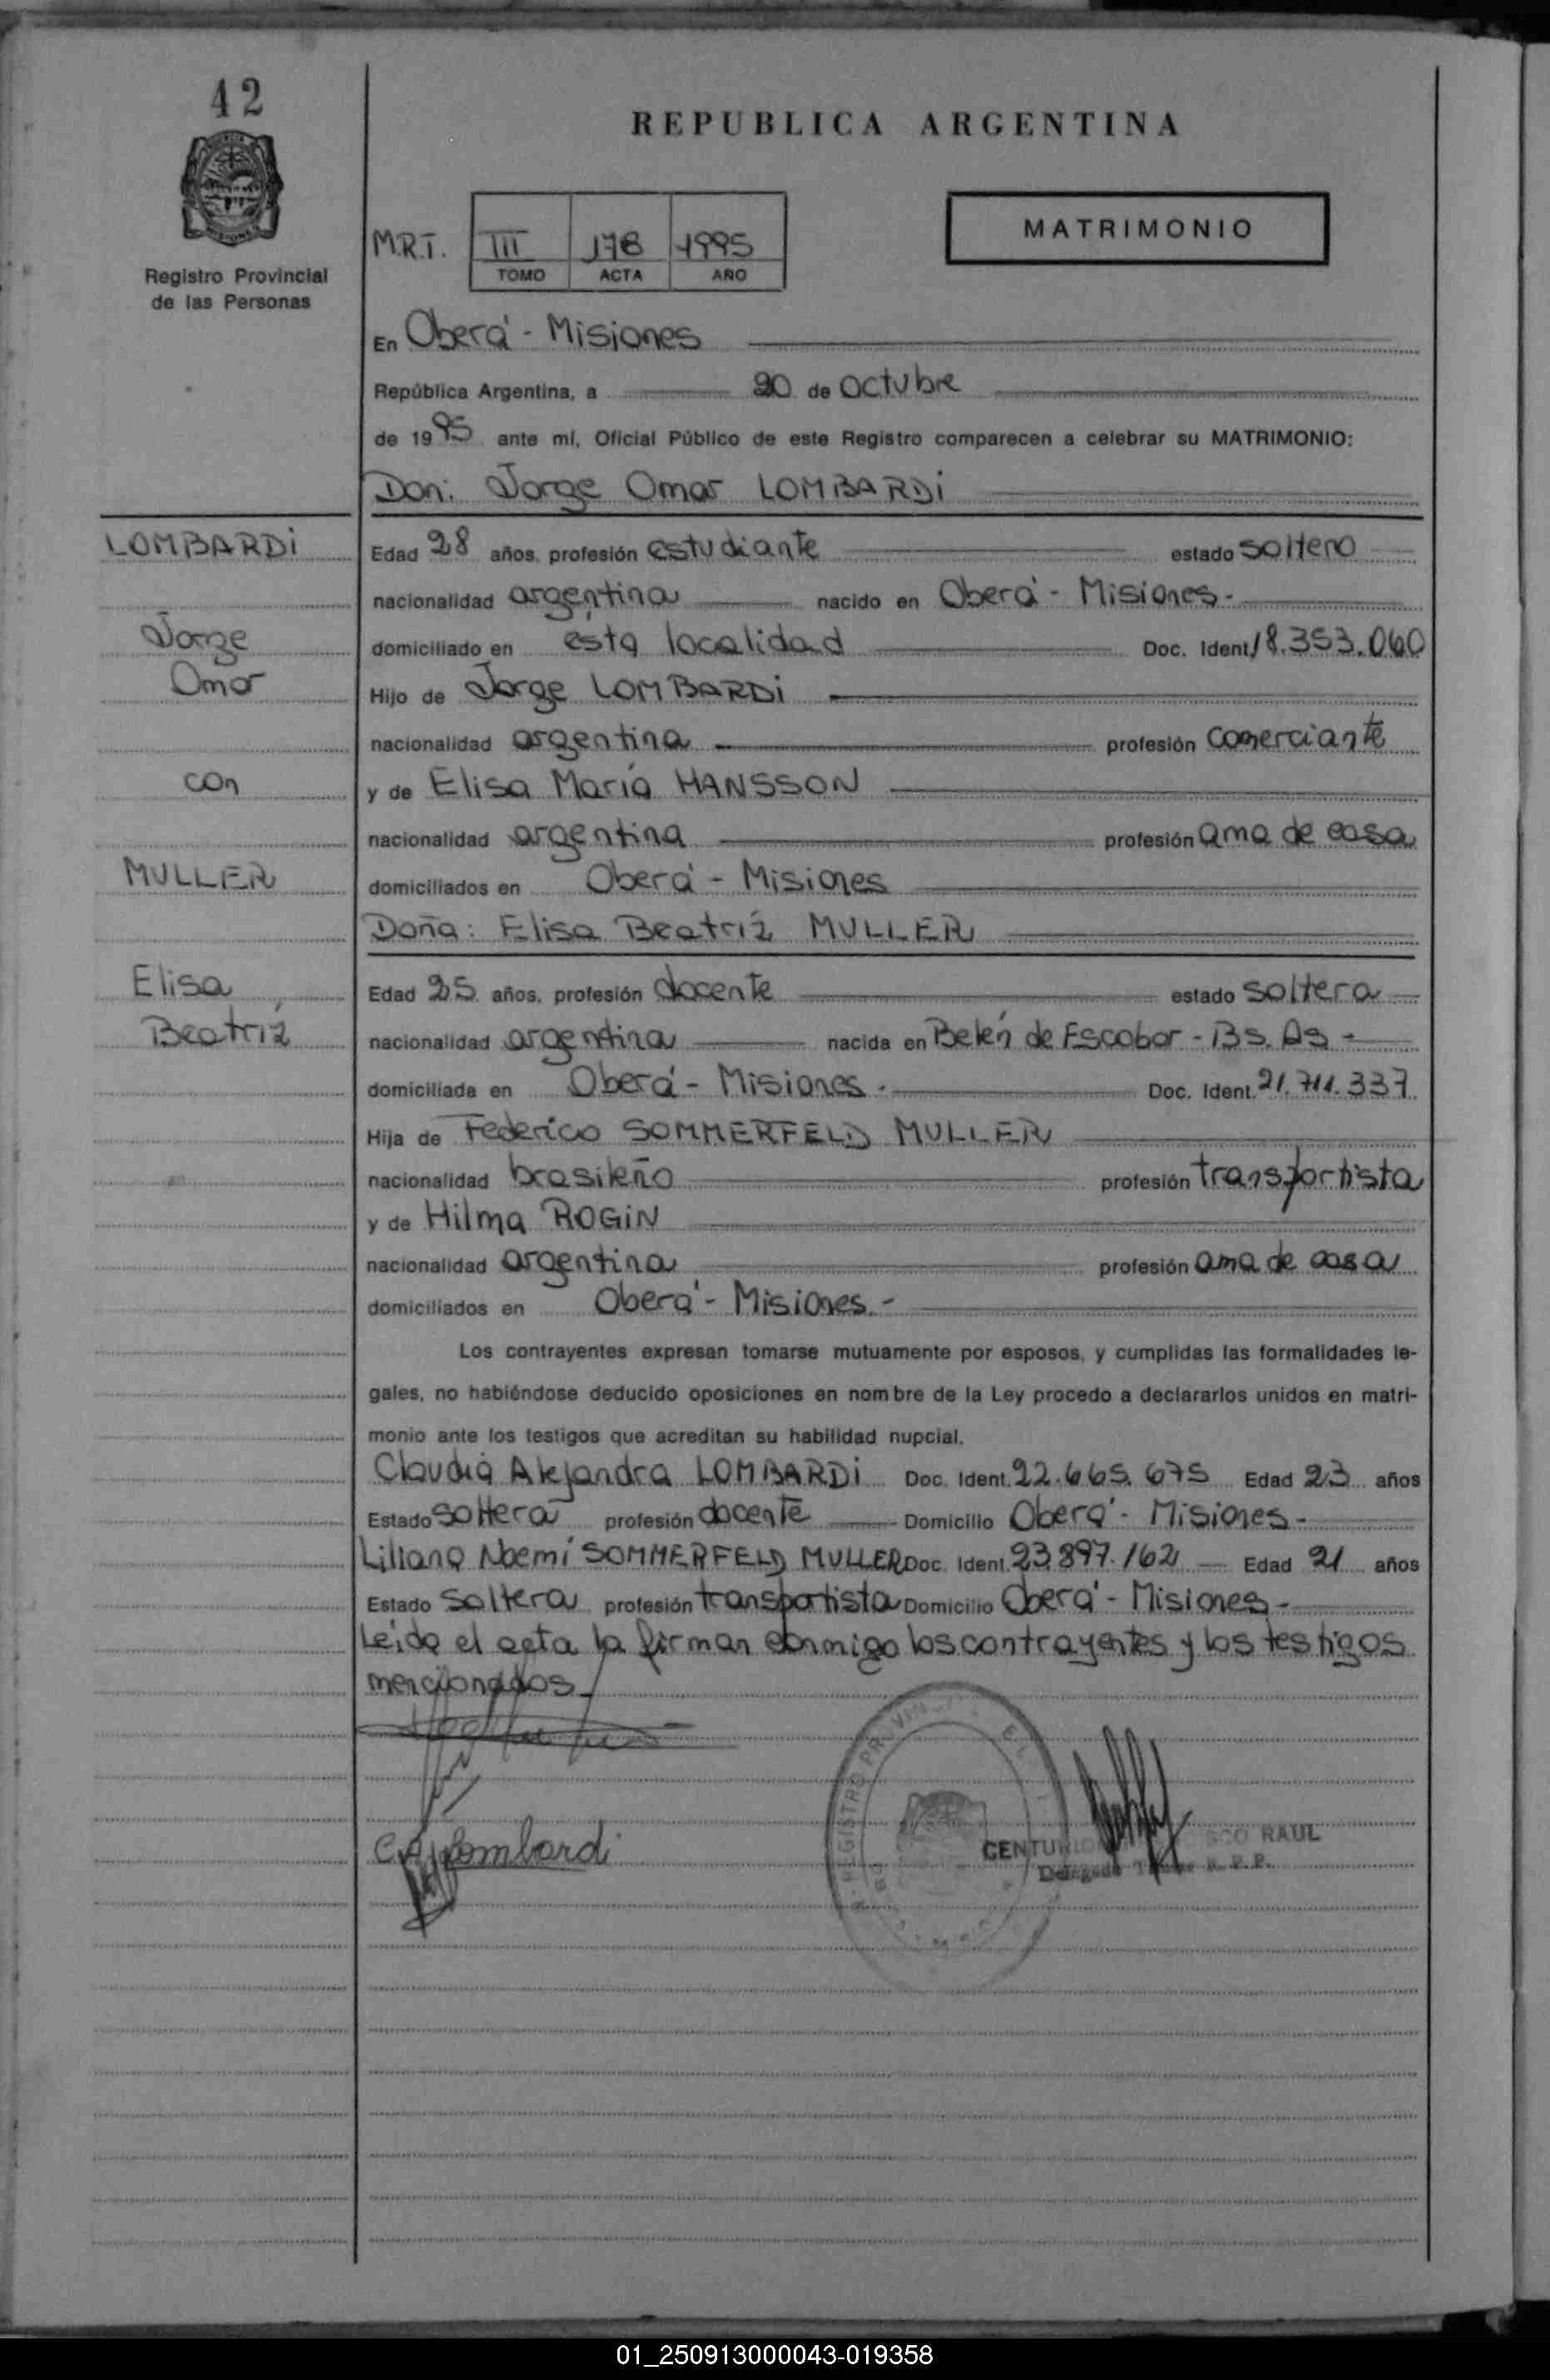 42
REPUBLICA ARGENTINA
Registro Provincial
de las Personas
M.R.T. III 178 1995
TOMO ACTA AÑO
MATRIMONIO
En Oberá - Misiones
República Argentina, a 20 de Octubre
de 1995 ante mí, Oficial Público de este Registro comparecen a celebrar su MATRIMONIO:
Don: Jorge Omar LOMBARDi
LOMBARDi
Edad 28 años, profesión estudiante estado soltero
nacionalidad argentina nacido en Oberá - Misiones.
Jorge
domiciliado en ésta localidad Doc. Ident. 18.353.060
Omar
Hijo de Jorge LOMBARDi
nacionalidad argentina profesión comerciante
con
y de Elisa María HANSSON
nacionalidad argentina profesión ama de casa
MULLER
domiciliados en Oberá - Misiones
Doña: Elisa Beatríz MULLER
Elisa
Edad 25 años, profesión docente estado soltera
Beatríz
nacionalidad argentina nacida en Belén de Escobar - Bs. As -
domiciliada en Oberá - Misiones. Doc. Ident. 21.711.337
Hija de Federico SOMMERFELD MULLER
nacionalidad brasileño profesión transportista
y de Hilma ROGiN
nacionalidad argentina profesión ama de casa
domiciliados en Oberá - Misiones.-
Los contrayentes expresan tomarse mutuamente por esposos, y cumplidas las formalidades le-
gales, no habiéndose deducido oposiciones en nombre de la Ley procedo a declararlos unidos en matri-
monio ante los testigos que acreditan su habilidad nupcial.
Claudia Alejandra LOMBARDi Doc. Ident. 22.665.675 Edad 23 años
Estado soltera profesión docente Domicilio Oberá - Misiones-
Liliana Noemí SOMMERFELD MULLER Doc. Ident. 23.897.162 Edad 21 años
Estado soltera profesión transportista Domicilio Oberá - Misiones-
Leída el acta la firman conmigo los contrayentes y los testigos
mencionados.
REGISTRO
Lombardi
RAUL
R. P. P.
01_250913000043-019358